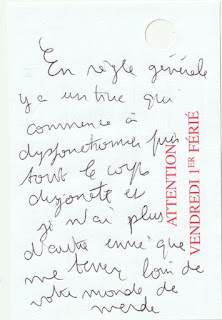 En règle générale
y a un truc qui
commence à
dysfonctionner puis
tout le corps
déjante et
je n'ai plus
d'autre envie que
me tenir loin de
votre monde de
merde
ATTENTION
VENDREDI 1ER FÉRIÉ